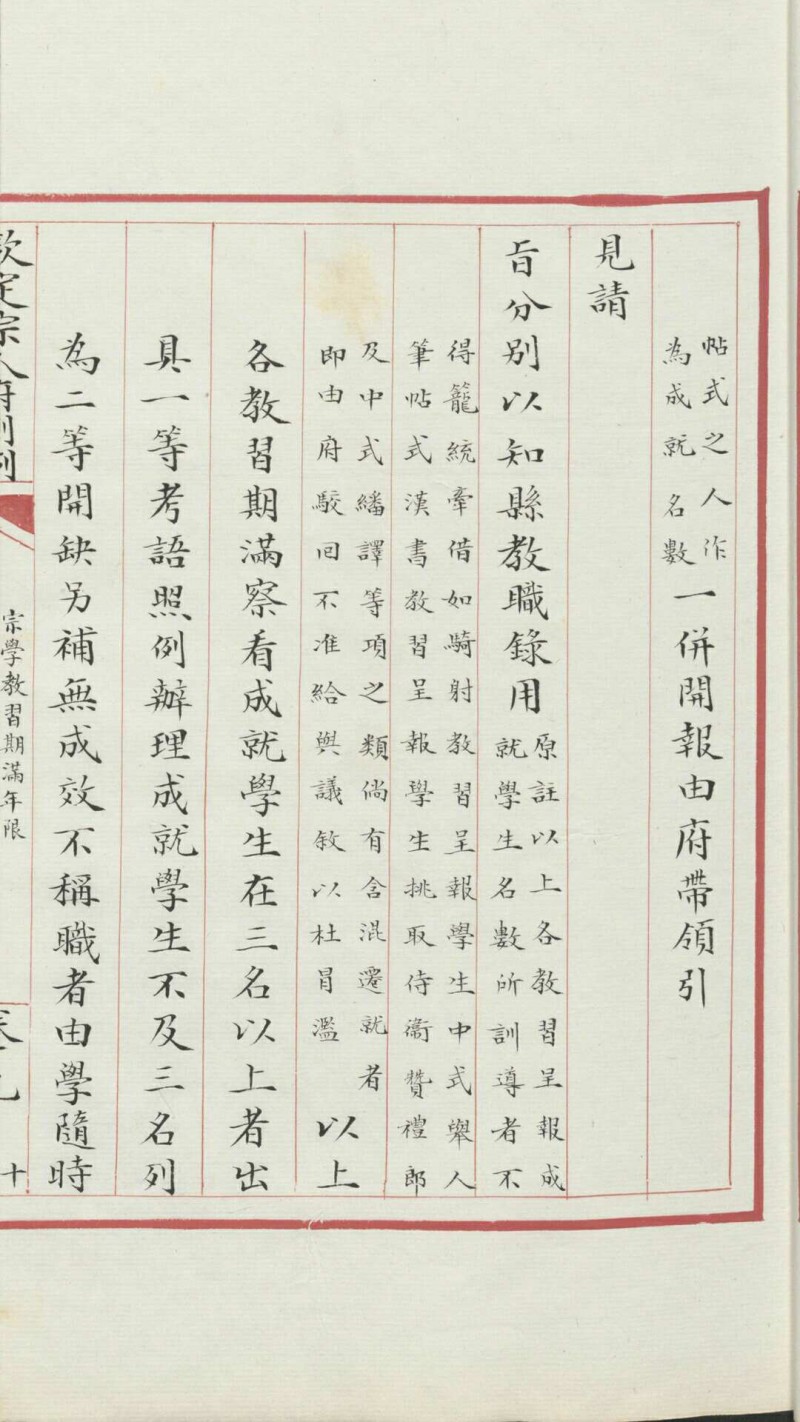 帖式之人作
為成就名數
一併開報由府帶領引
見請
旨分別以知縣教職錄用
原註以上各教習呈報成
就學生名數所訓導者不
得籠統牽借如騎射教習呈報學生中式舉人
筆帖式漢書教習呈報學生挑取侍衞贊禮郎
及中式繙譯等項之類倘有含混遷就者
即由府駁回不准給與議敘以杜冒濫
以上
各教習期滿察看成就學生在三名以上者出
具一等考語照例辦理成就學生不及三名列
為二等開缺另補無成效不稱職者由學隨時
欽定宗人府則例
宗學教習期滿年限
卷九
十